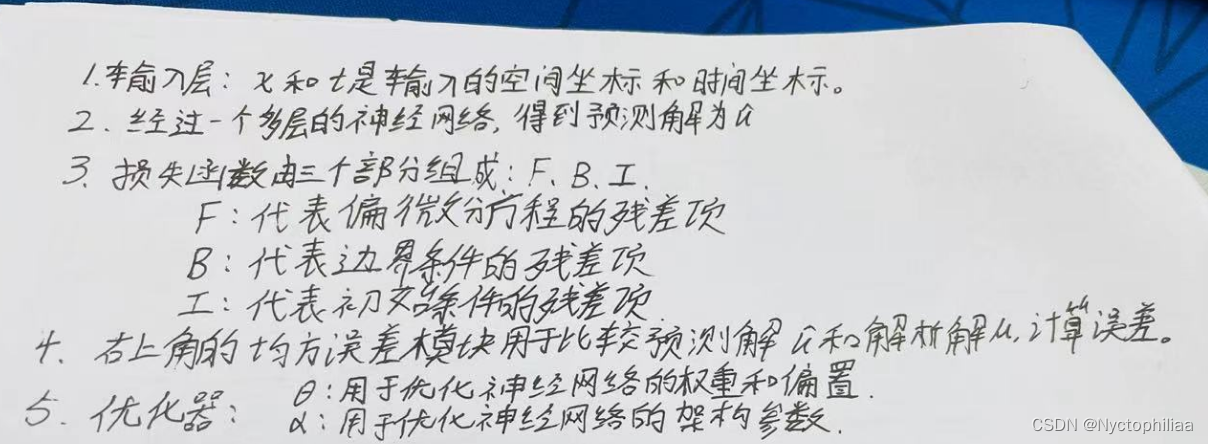 1.输入层：x和t是输入的空间坐标和时间坐标。
2、经过一个多层的神经网络，得到预测解为û
3、损失函数由三个部分组成：F、B、I.
F：代表偏微分方程的残差项
B：代表边界条件的残差项
I：代表初始条件的残差项
4、右上角的均方误差模块用于比较预测解û和解析解u，计算误差。
5、优化器：θ：用于优化神经网络的权重和偏置.
α：用于优化神经网络的架构参数.
CSDN @Nyctophiliaa